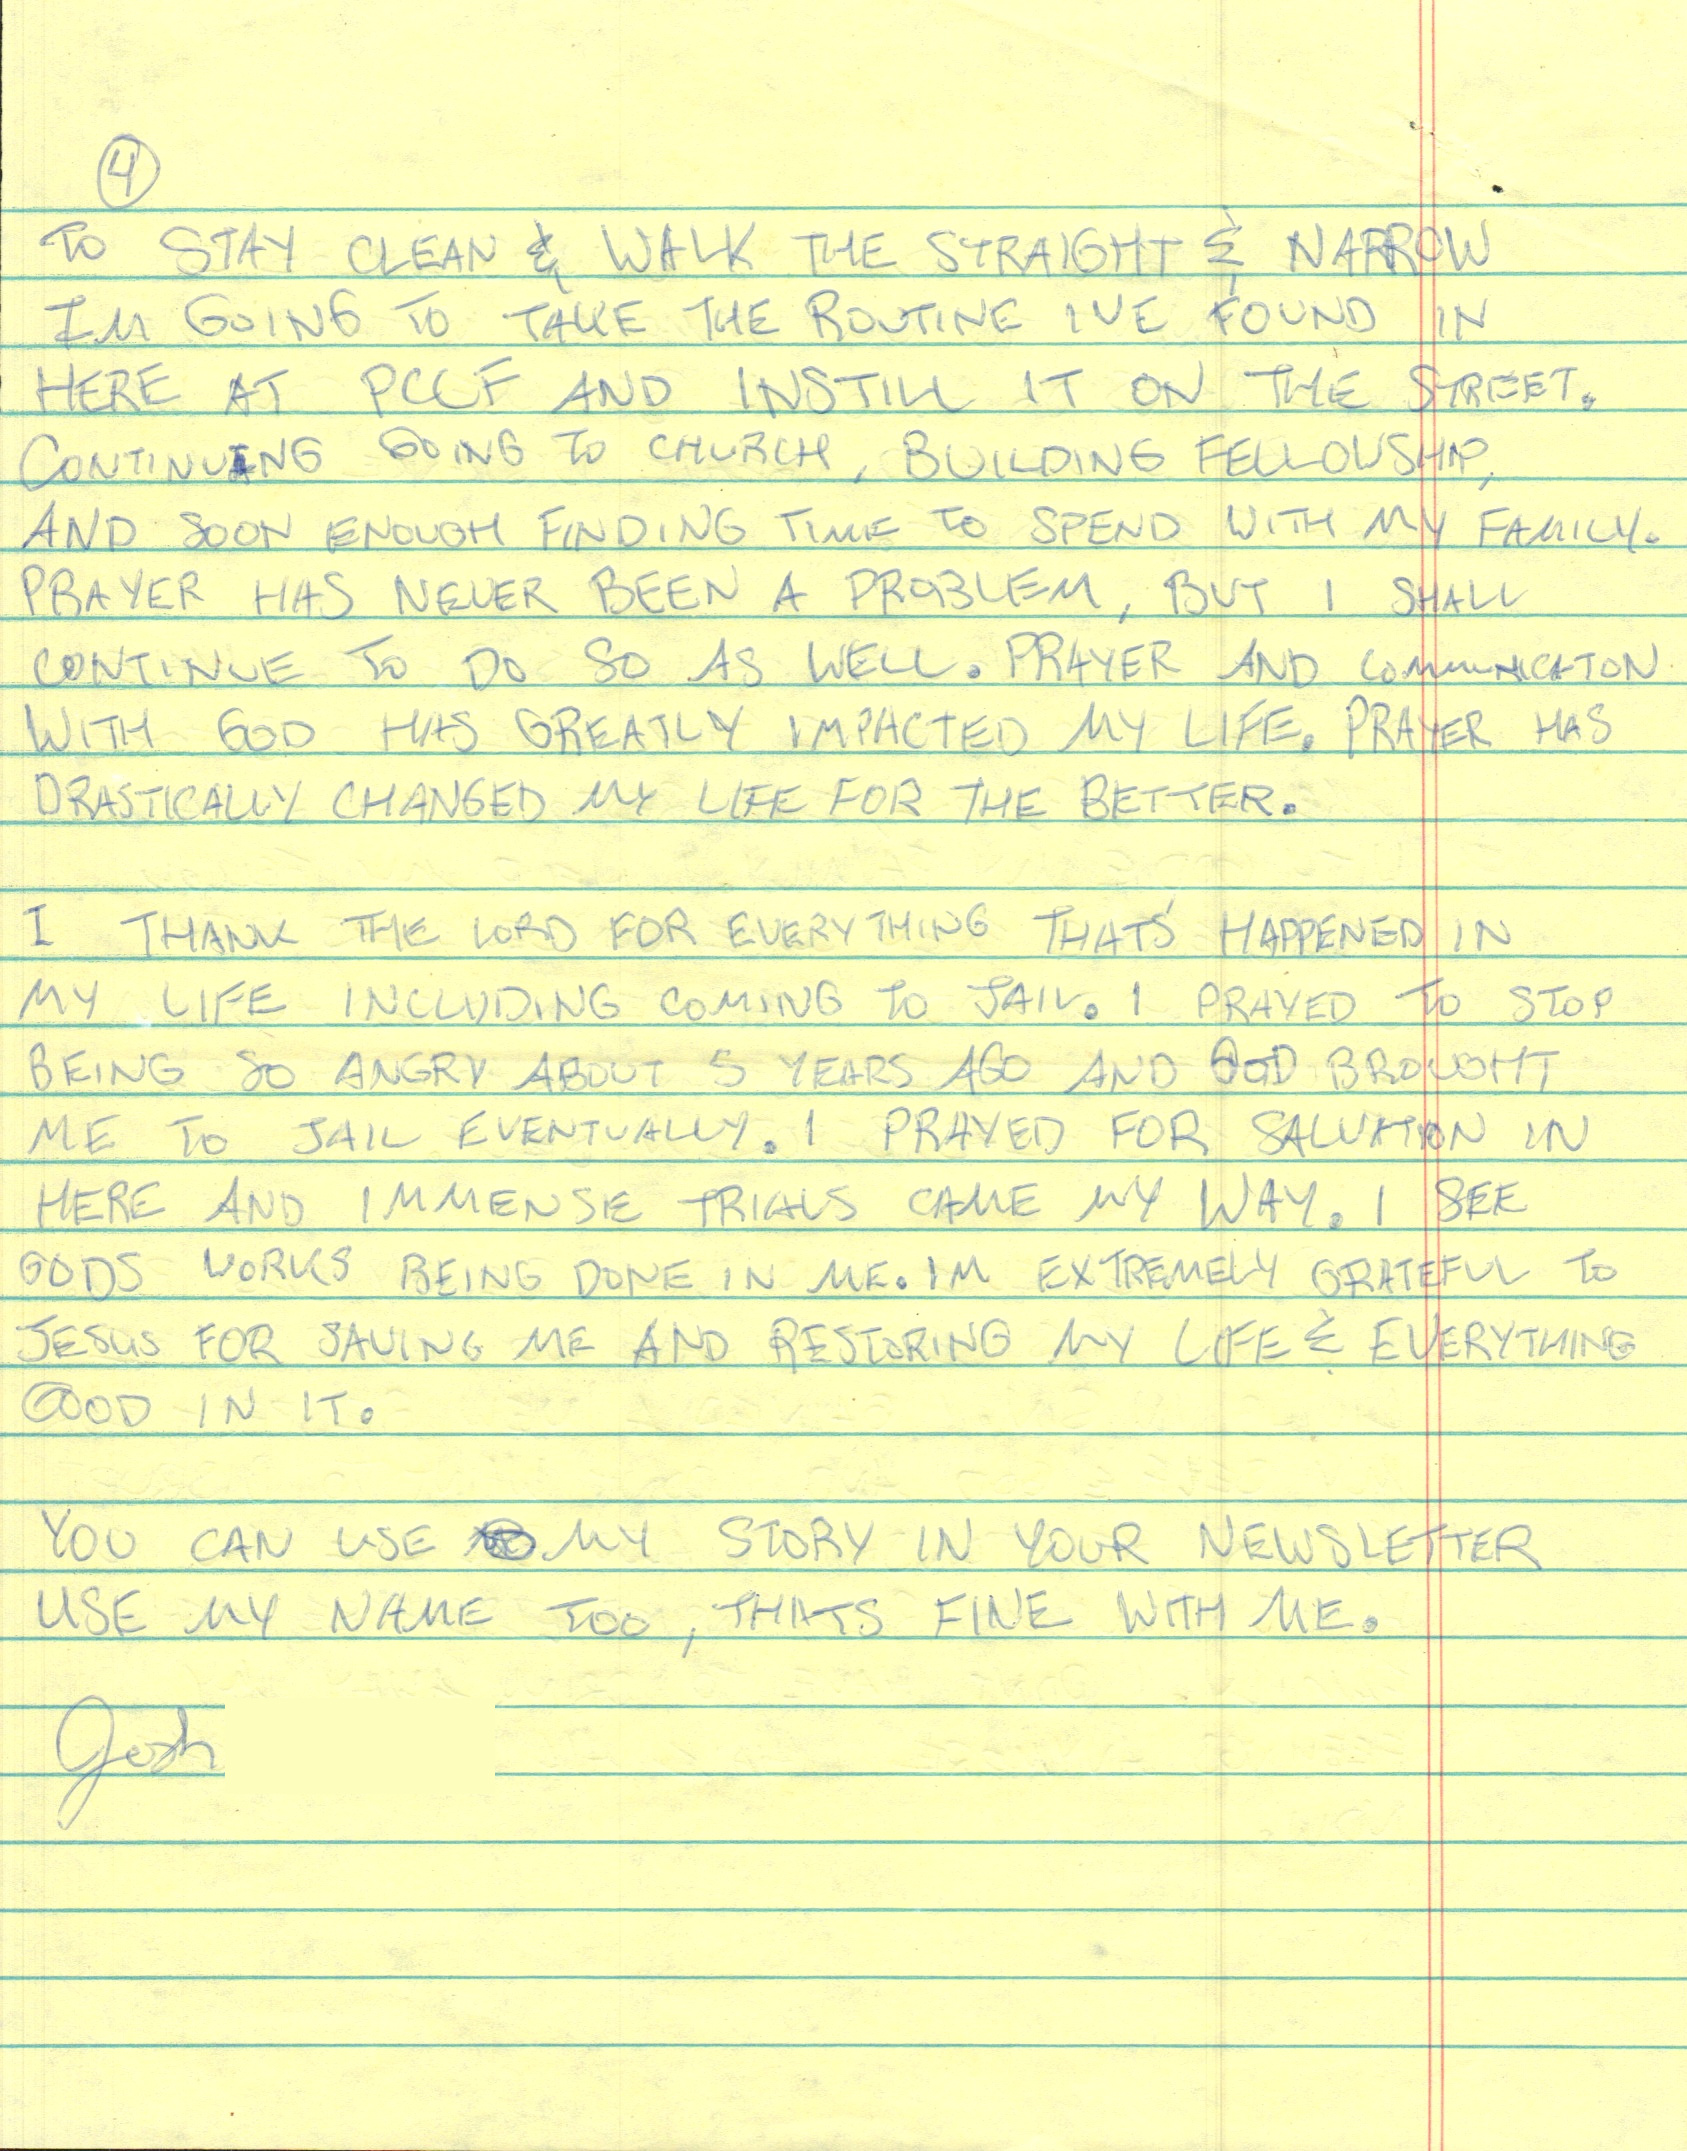 4
TO STAY CLEAN & WALK THE STRAIGHT & NARROW
IM GOING TO TAKE THE ROUTINE IVE FOUND IN
HERE AT PCCF AND INSTILL IT ON THE STREET.
CONTINUING GOING TO CHURCH, BUILDING FELLOWSHIP,
AND SOON ENOUGH FINDING TIME TO SPEND WITH MY FAMILY.
PRAYER HAS NEVER BEEN A PROBLEM, BUT I SHALL
CONTINUE TO DO SO AS WELL. PRAYER AND COMMUNICATON
WITH GOD HAS GREATLY IMPACTED MY LIFE. PRAYER HAS
DRASTICALLY CHANGED MY LIFE FOR THE BETTER.
I THANK THE LORD FOR EVERYTHING THAT'S HAPPENED IN
MY LIFE INCLUDING COMING TO JAIL. I PRAYED TO STOP
BEING SO ANGRY ABOUT 5 YEARS AGO AND GOD BROUGHT
ME TO JAIL EVENTUALLY. I PRAYED FOR SALVATION IN
HERE AND IMMENSE TRIALS CAME MY WAY. I SEE
GODS WORKS BEING DONE IN ME. IM EXTREMELY GRATEFUL TO
JESUS FOR SAVING ME AND RESTORING MY LIFE & EVERYTHING
GOOD IN IT.
YOU CAN USE MY STORY IN YOUR NEWSLETTER
USE MY NAME TOO, THATS FINE WITH ME.
Josh